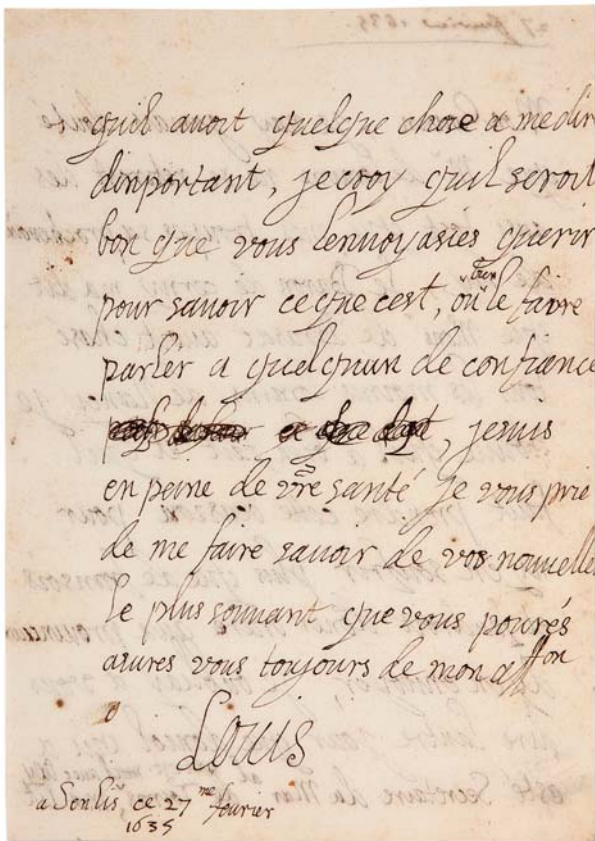 quil avoit quelque chose a me dir
dinportant, je croy quil seroit
bon que vous lenvoyasies querir
pour savoir ce que cest, ou bien le faire
parler a quelquun de confiance
, je suis
en peine de vre santé je vous prie
de me faire savoir de vos nouvelle
le plus souvant que vous pourés
asures vous toujours de mon affon
Louis
a Senlis ce 27me fevrier
1635